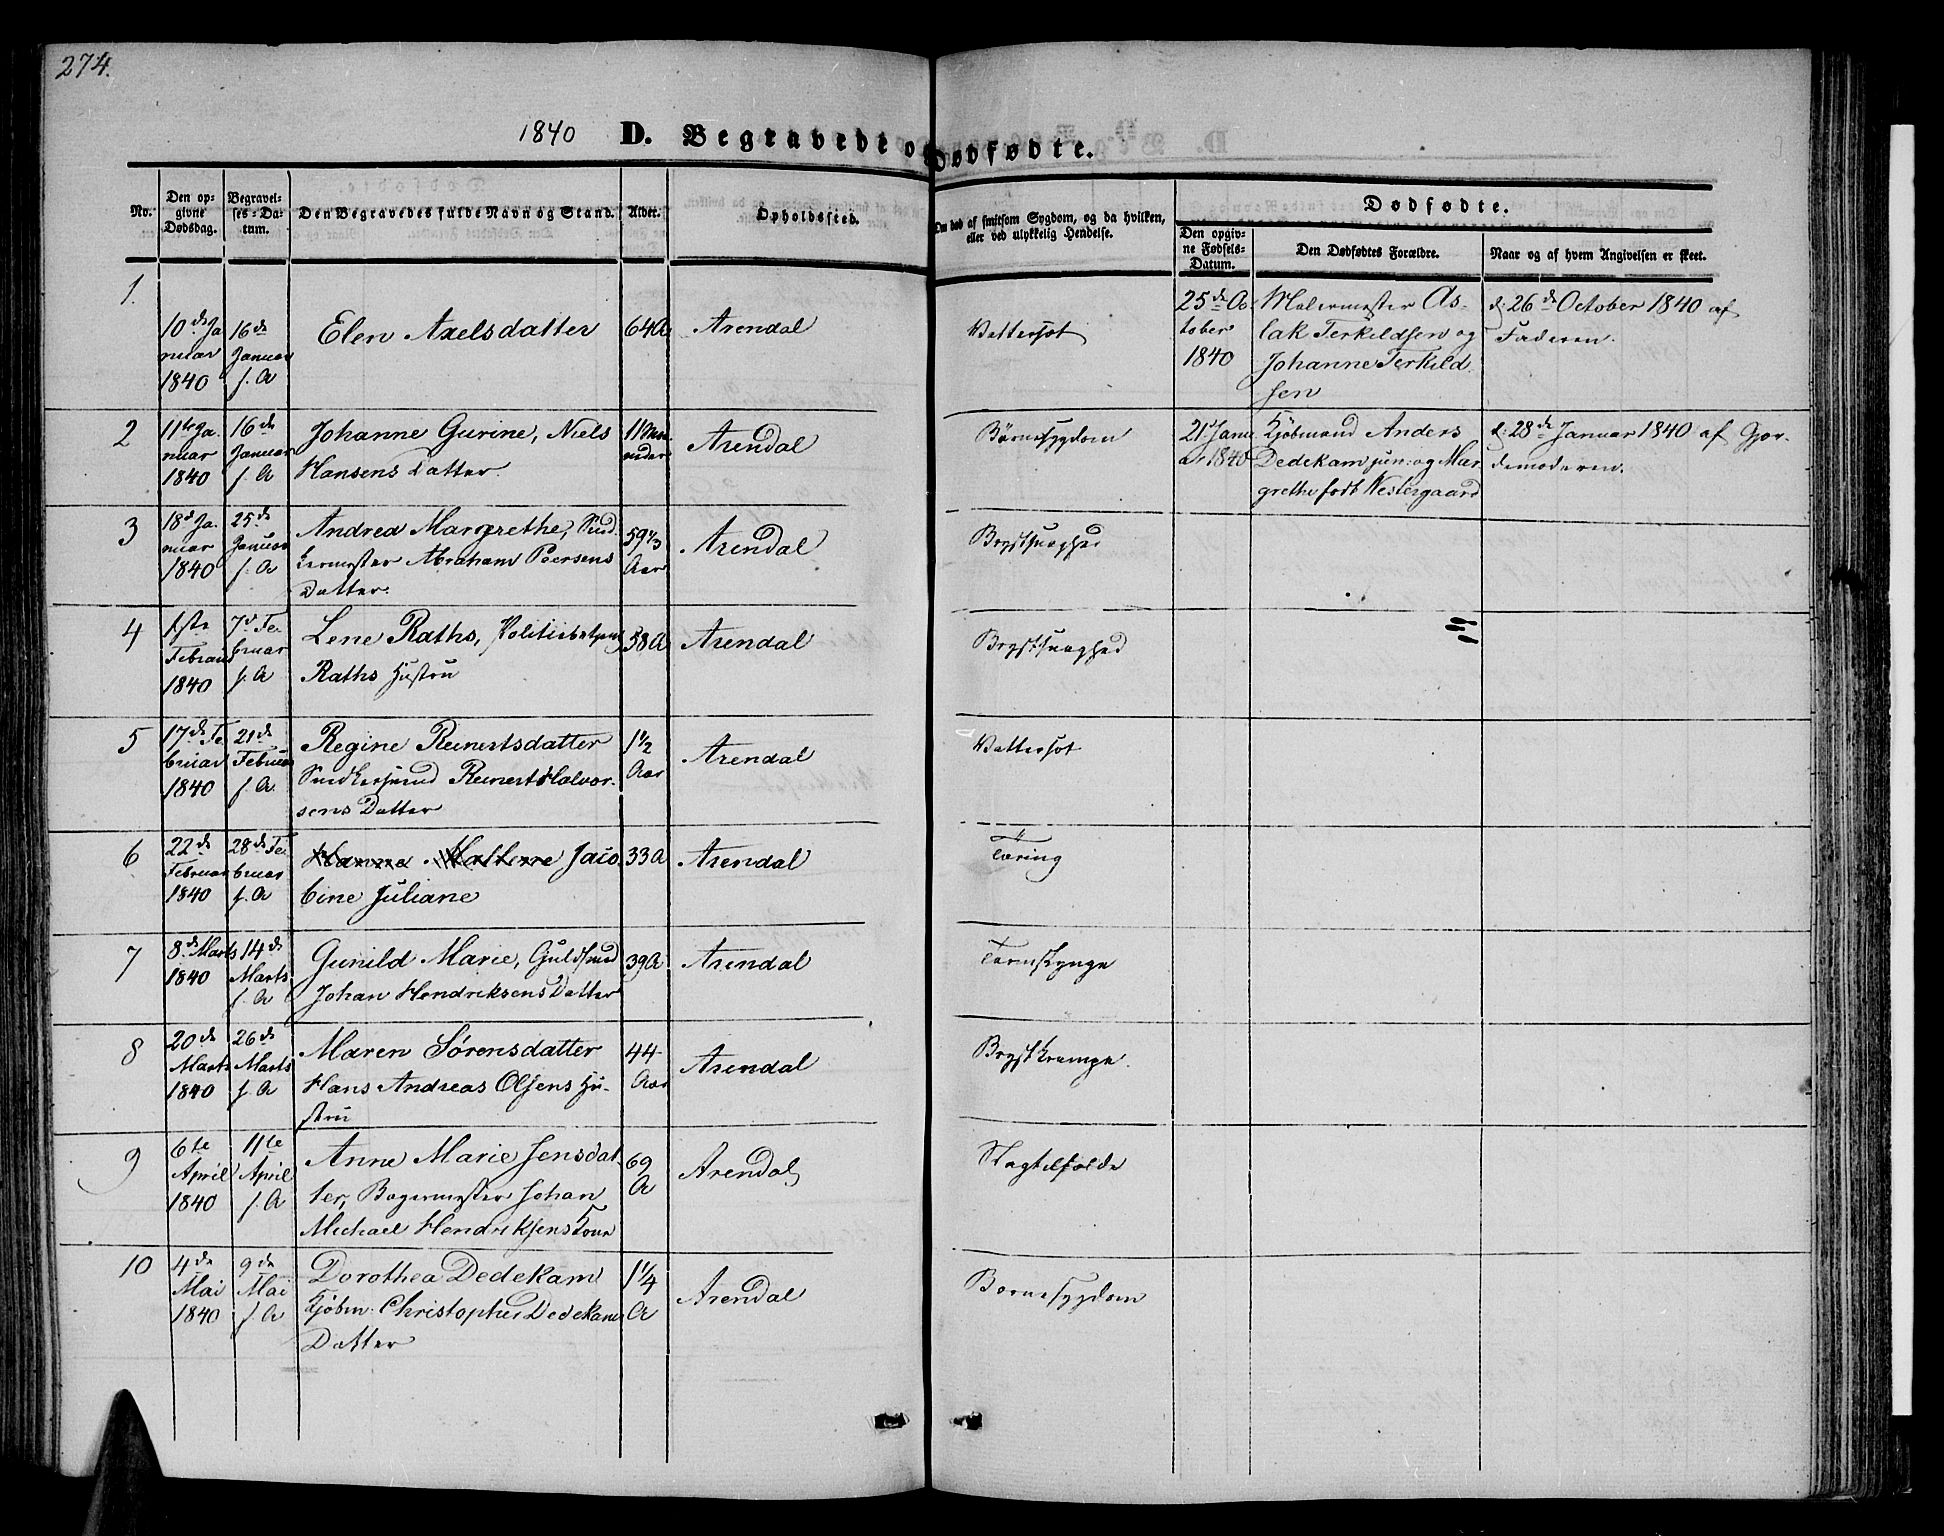 274.
1840 D. Begravede og Dødfødte.
Nr.
Den opgivne Dødsdag.
Begravelses-Datum.
Den Begravedes fulde Navn og Stand.
Alder.
Opholdssted.
Om død af smitsom Sygdom, og da hvilken, eller ved ulykkelig Hendelse.
Dødfødte.
Den opgivne Fødsels-Datum.
Den Dødfødtes Forældre.
Naar og af hvem Angivelsen er skeet.
1.
10de Ja
nuar
1840
16de
Januar
s. A
Elen Axelsdatter
64 A
Arendal
Vattersot
25de Oc
tober
1840
Malermester As-
lak Terkildsen og
Johanne Terkild
sen
d: 26de October 1840 af
Faderen.
2
11te Ja.
nuar
1840
16de
Januar
s. A
Johanne Gurine, Niels
Hansens Datter.
11 Maa
neder
Arendal
Børnesygdom
21 Janu
ar 1840
Kjøbmand Anders
Dedekam jun: og Mar
grethe født Westergaard
d: 28de Januar 1840 af Gjor-
demoderen.
3
18d Ja.
nuar
1840
25de
Januar
s. A
Andrea Margrethe, Snid
kermester Abraham Peersens
Datter.
59 1/3
Aar
Arendal
Brystsvaghed
4
1ste
Februar
1840
7d Fe
bruar
s. A
Lene Raths, Politiebetjent
Raths Hustru
58 A
Arendal
Brystsvaghed
5
17de Fe
bruar
1840
21de
Februar
s. A
Regine Reinertsdatter
Snidkersvend Reinert Halvor-
sens Datter
1 1/2
Aar
Arendal
Vattersot
6
22de
Februar
1840
28de Fe
bruar
s. A
Hanne Mallene Jaco
bine Juliane
33 A
Arendal
Tæring
7
8de Marts
1840
14de
Marts
s. A
Gunild Marie, Guldsmed
Johan Hendriksens Datter
39 A
Arendal
8
20de
Marts
1840
26de
Marts
s. A
Maren Sørensdatter
Hans Andreas Olsens Hu-
stru
44
Aar
Arendal
Brystkrampe.
9
6te
April
1840
11te
April
s. A
Anne Marie Jensdat
ter, Bagermester Johan
Michael Hendriksens Kone
69
A
Arendal
Slagtilfælde
10
4de
Mai
1840
9de
Mai
s. A
Dorothea Dedekam
Kjøbm: Christopher Dedekams
Datter
1 1/4
A
Arendal
Børnesygdom